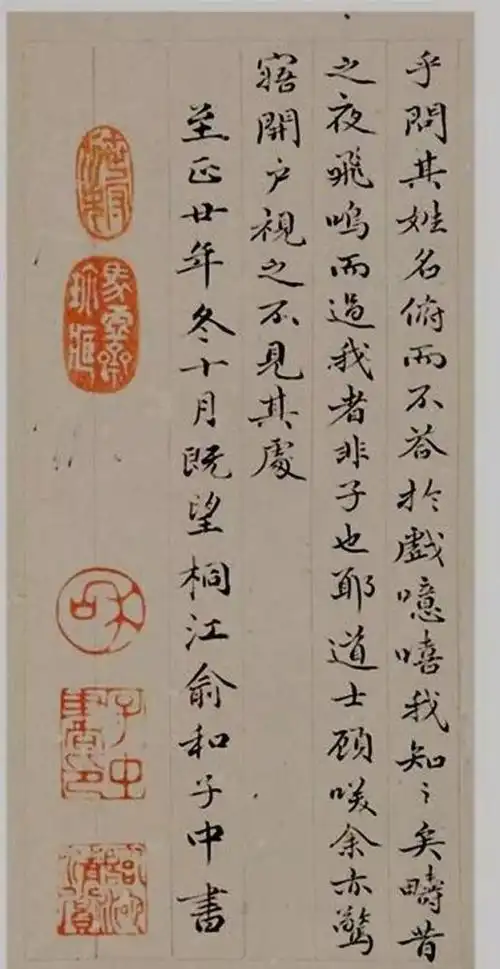 乎問其姓名俯而不荅扵戲噫嘻我知〻矣疇昔
之夜飛鳴而過我者非子也耶道士顧咲余亦驚
寤開户視之不見其處
至正廿年冬十月既望桐江俞和子中書
和